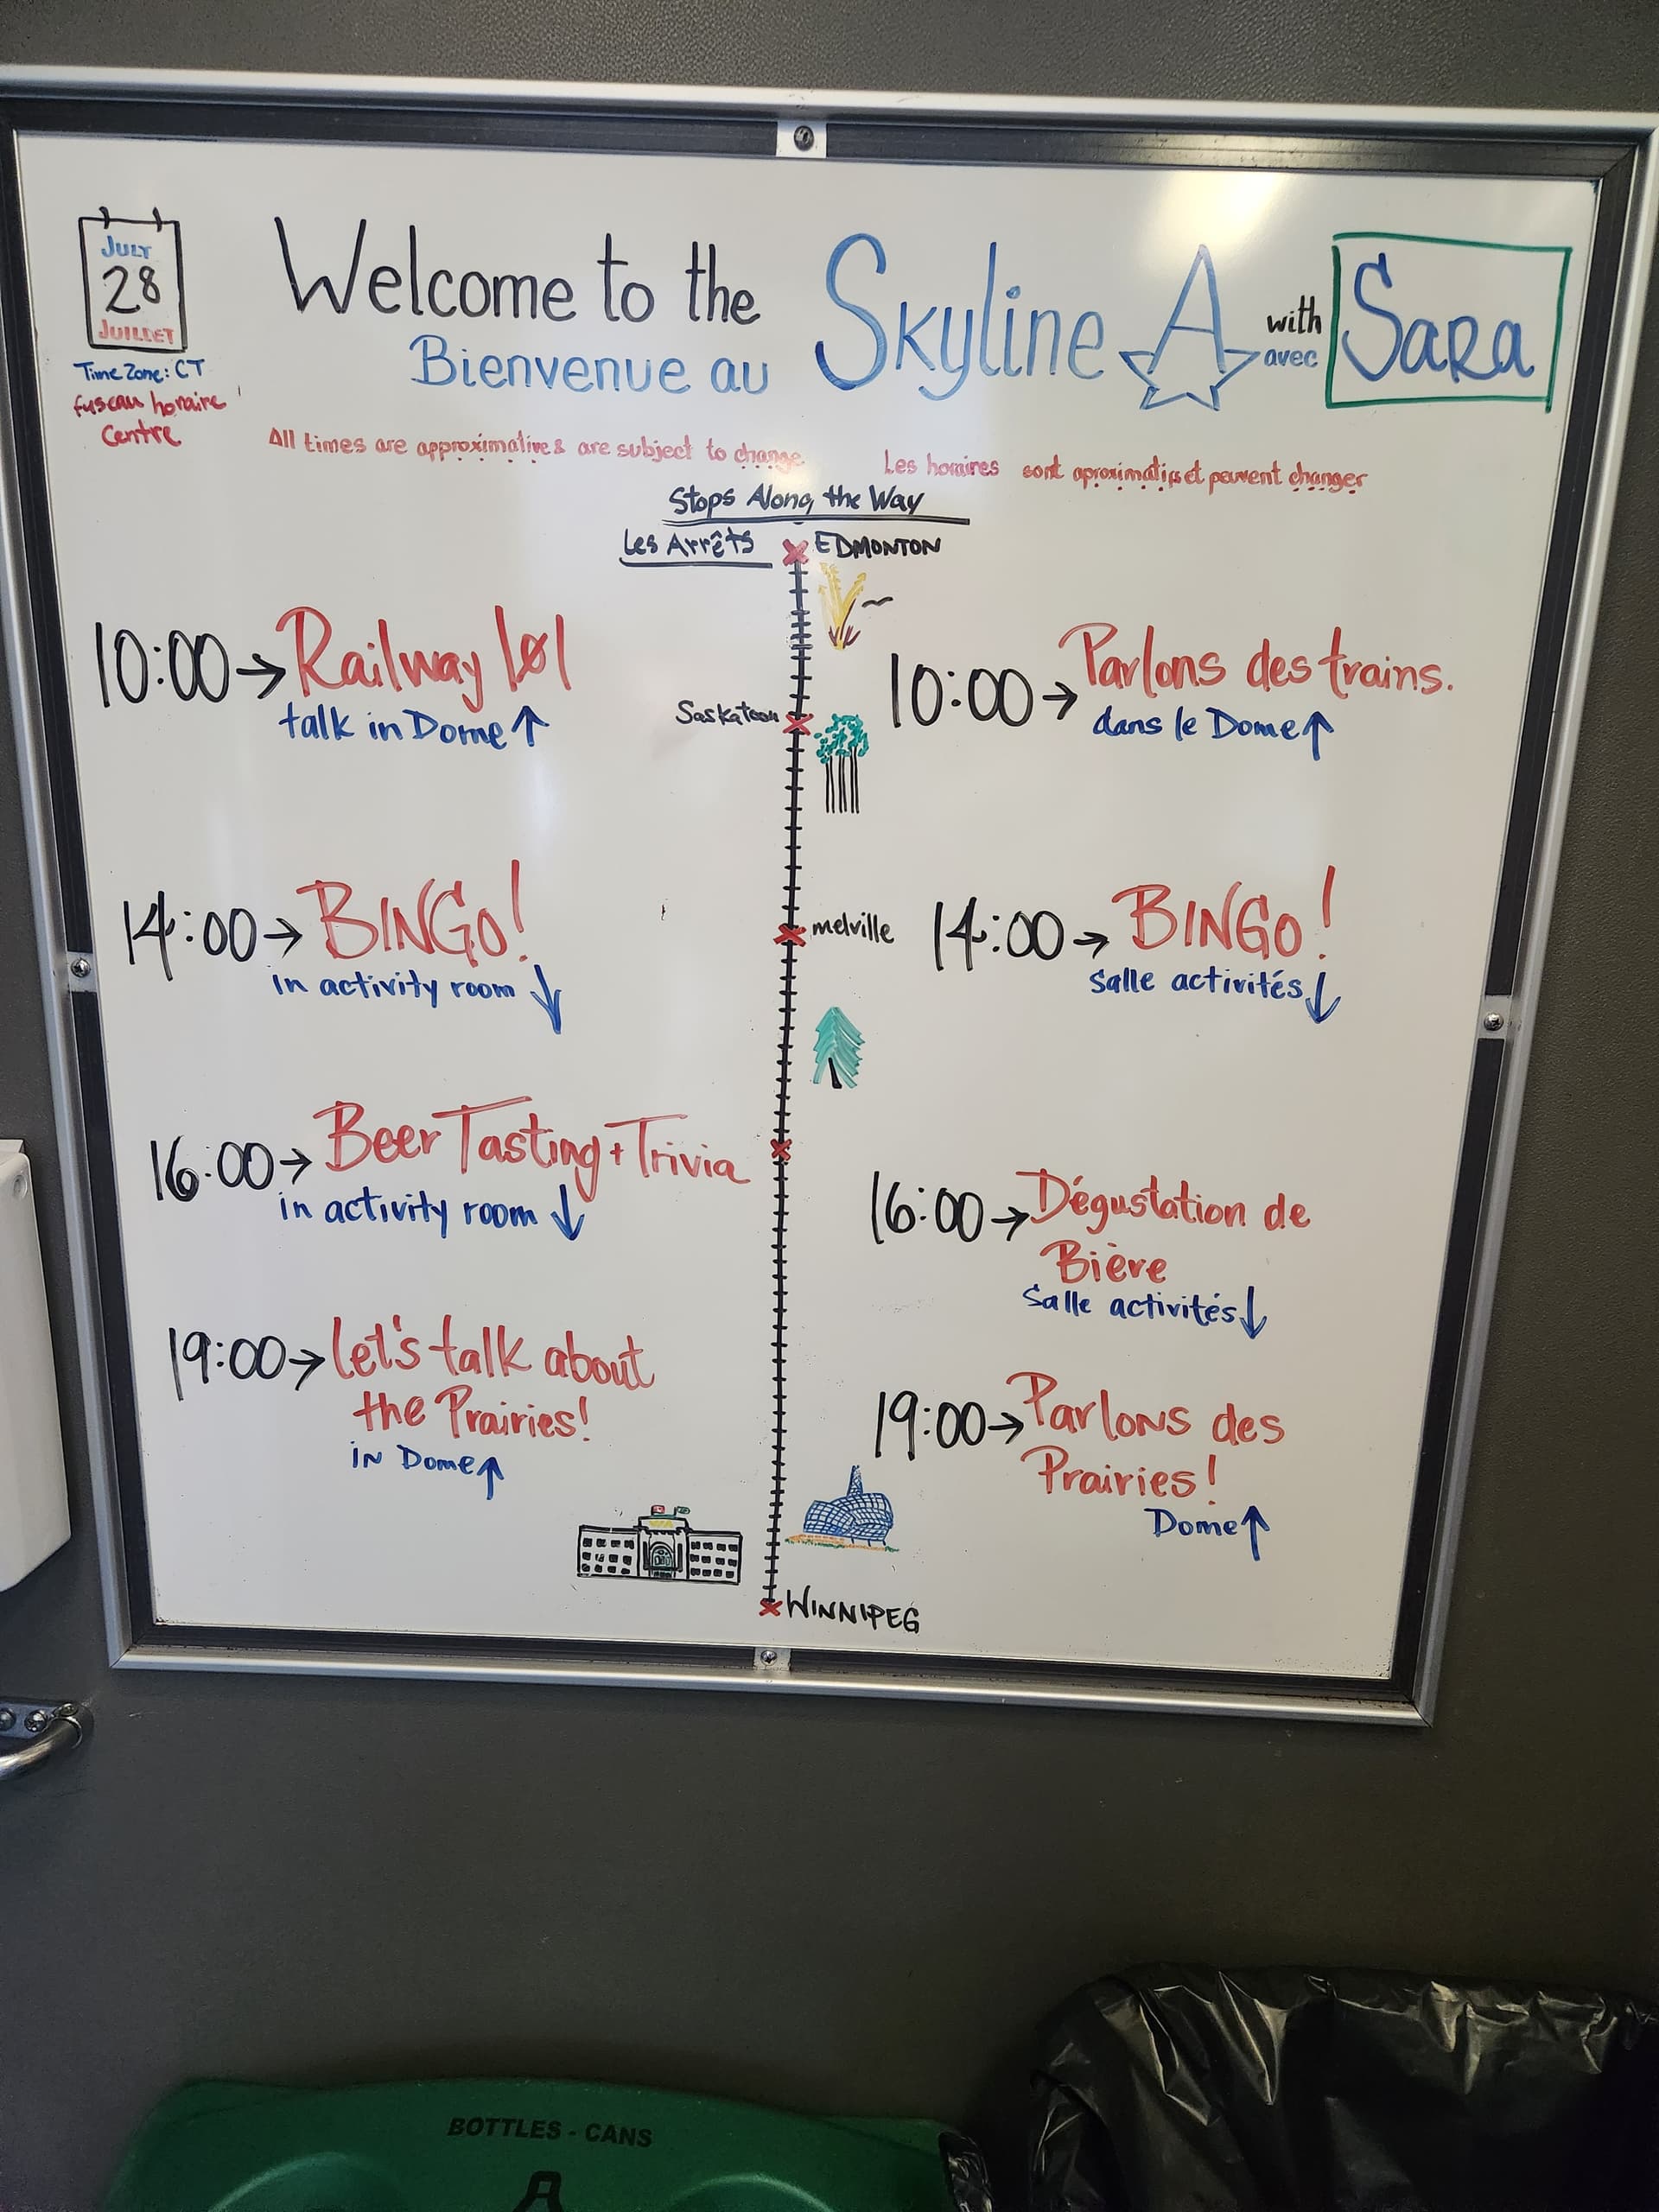 JULY
28
JUILLET
Time Zone: CT
fuseau horaire
Centre
Welcome to the
Bienvenue au
Skyline A
with
avec
Sara
All times are approximative & are subject to change
Les horaires sont aproximatifs et peuvent changer
Stops Along the Way
Les Arrêts
EDMONTON
10:00 → Railway 101
talk in Dome ↑
Saskatoon
10:00 → Parlons des trains.
dans le Dome ↑
14:00 → BINGO!
in activity room ↓
melville
14:00 → BINGO!
Salle activités ↓
16:00 → Beer Tasting + Trivia
in activity room ↓
16:00 → Dégustation de
Bière
Salle activités ↓
19:00 → Let's talk about
the Prairies!
in Dome ↑
19:00 → Parlons des
Prairies!
Dome ↑
WINNIPEG
BOTTLES - CANS